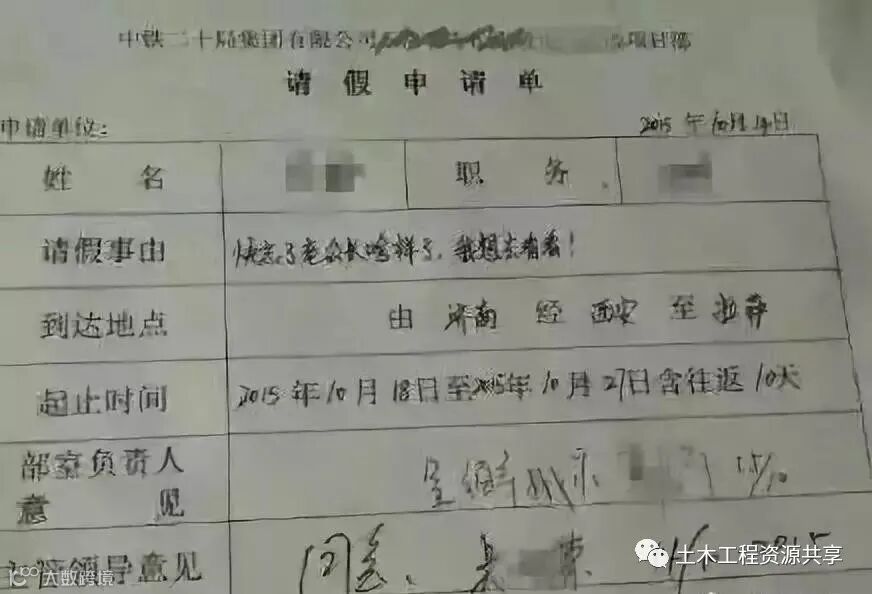 中铁二十局集团有限公司 项目部
请假申请单
申请单位: 2015年10月14日
姓名 职务
请假事由 快忘了老众长啥样了,我想去看看!
到达地点 由 济南 经 西安 至 拉萨
起止时间 2015年10月18日至2015年10月27日含往返10天
部室负责人
意见 15/10
领导意见 同意、
土木工程资源共享
大数跨境